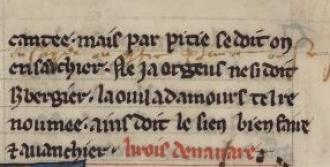 cantee · mais par pitie se doit on
ensaichier · Ne ja orgeus ne si doit
hbergier · la ou il ad amours tel re
noumee · ains doit le sien bien faire
⁊ auanchier · li rois de nauare ·